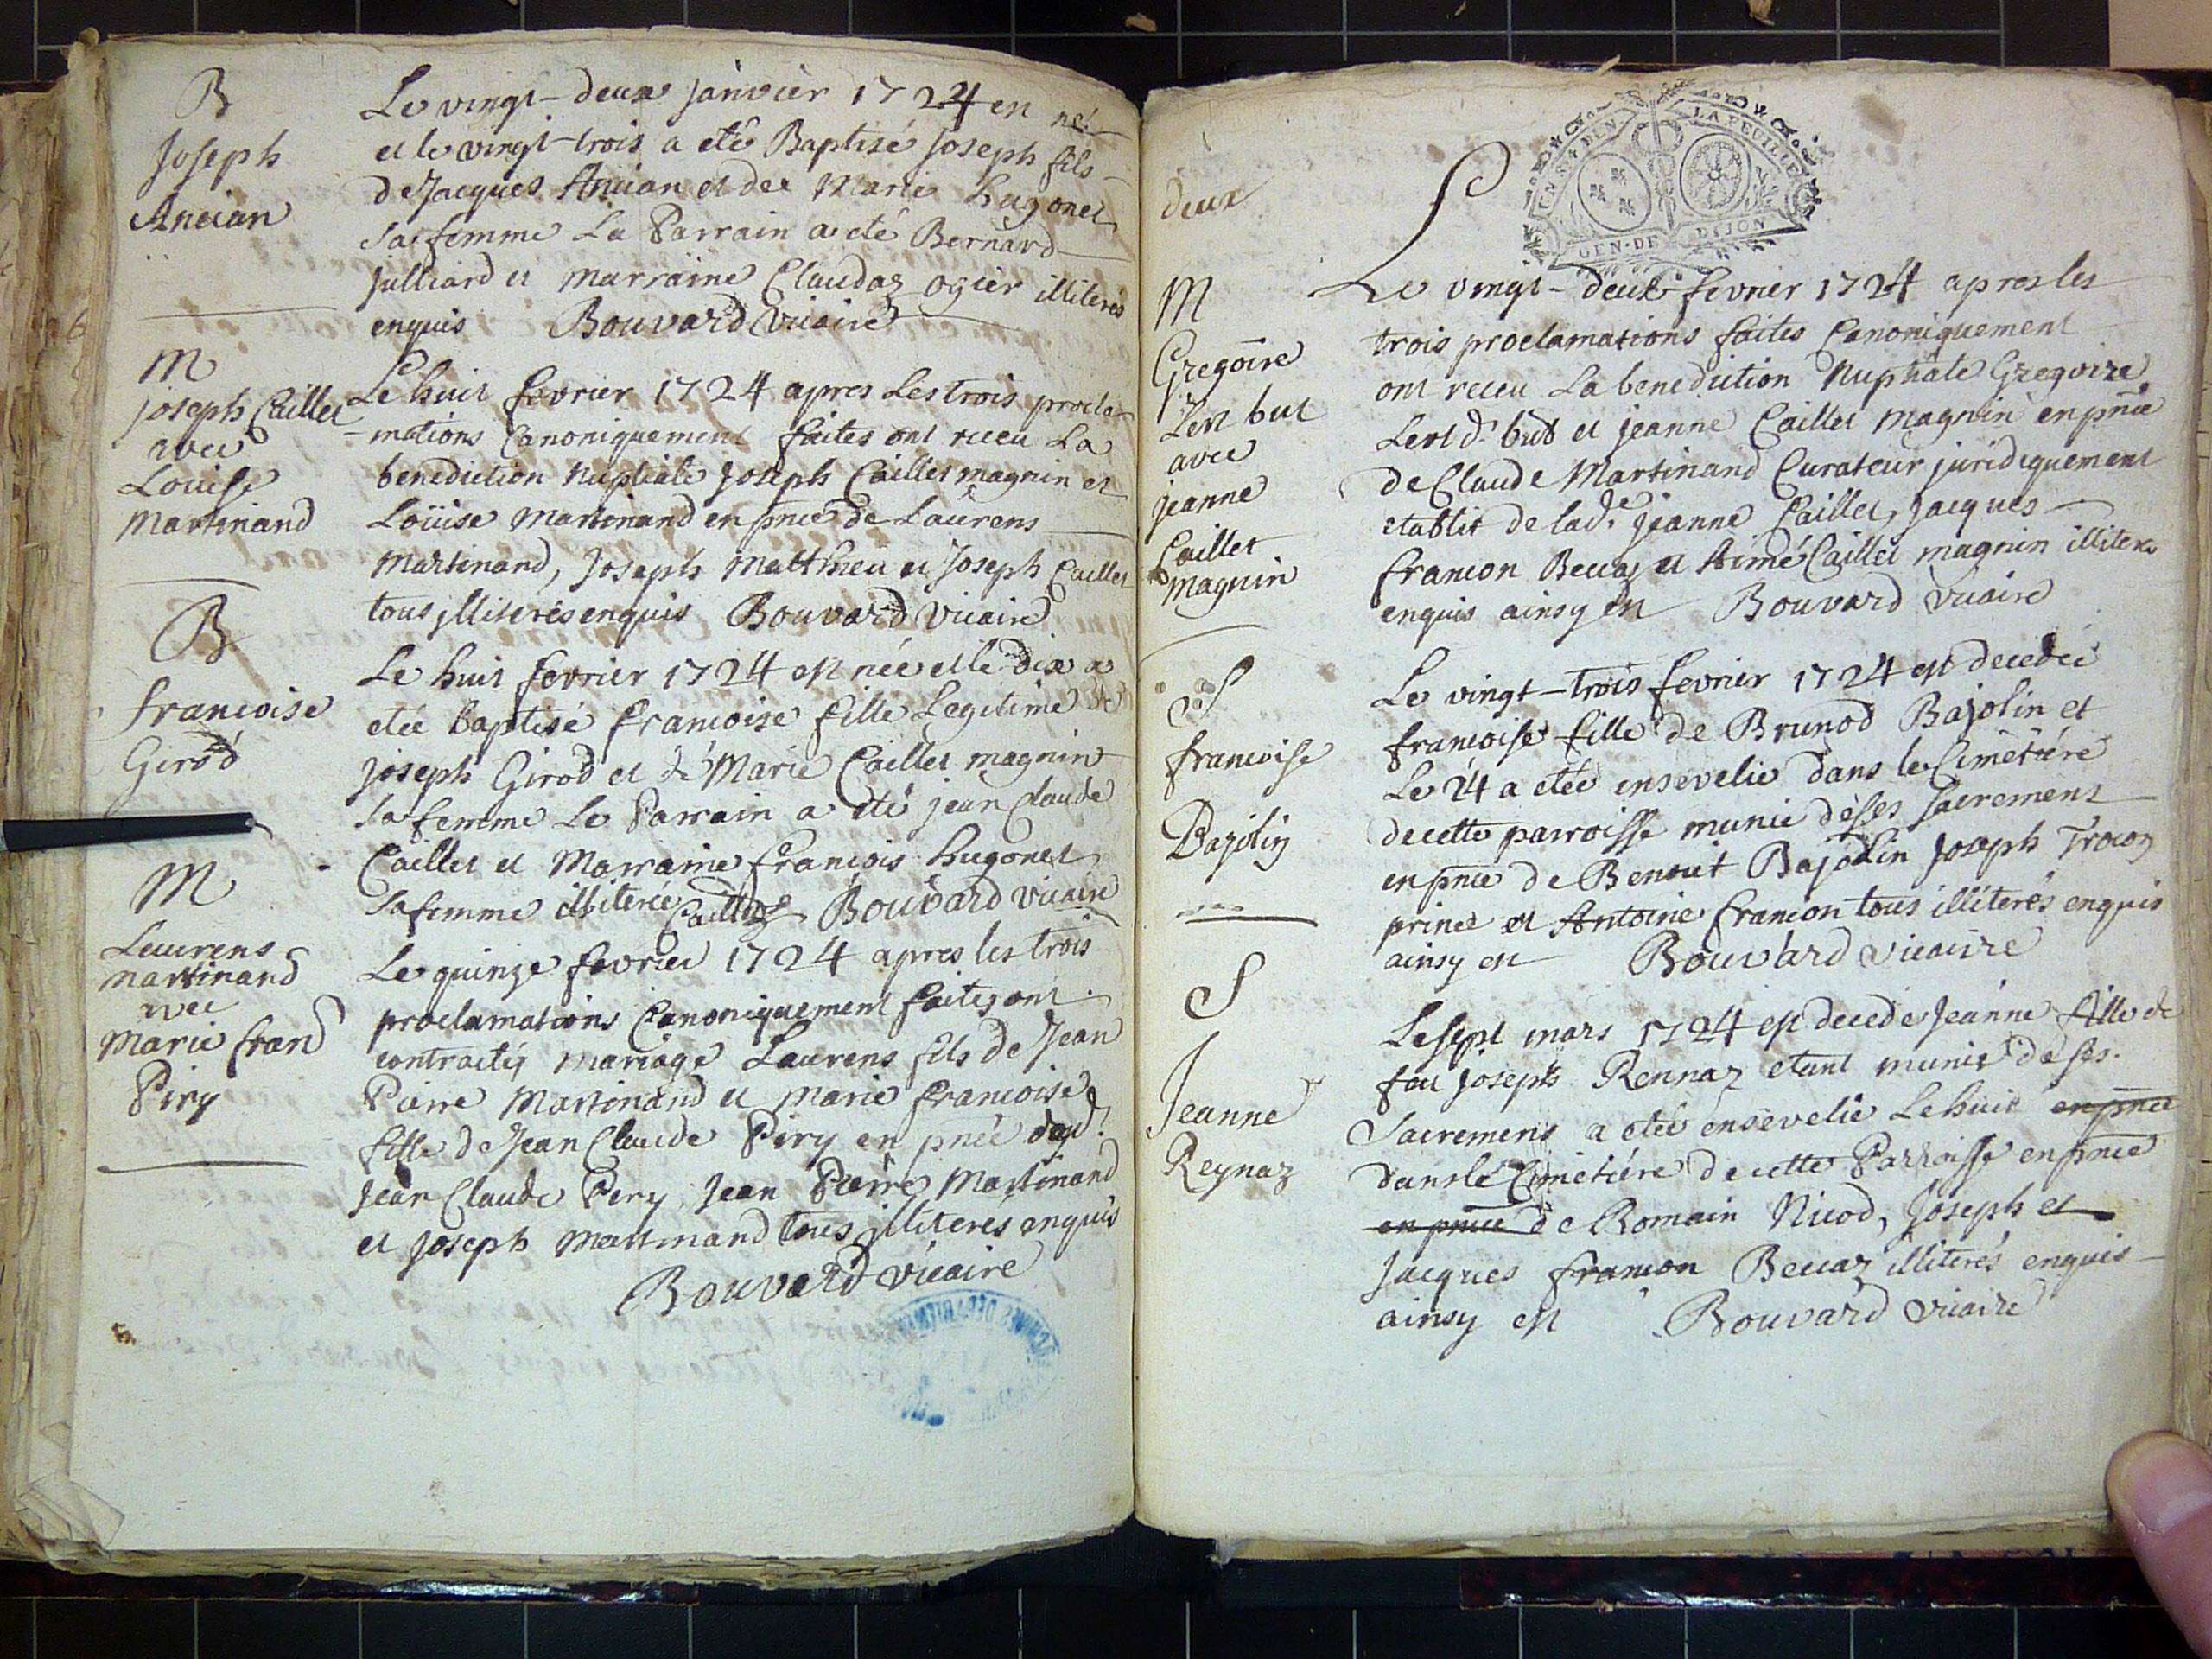 B
Joseph
Ancian
Le vingt-deux janvier 1724 en né
et le vingt-trois a eté Baptisé Joseph fils
de Jacques Ancian et dee Marie hugonet
sa femme La Parrain a eté Bernard
julliard et marraine Claudaz ogier illiterés
enquis Bouvard Vicaire
M
joseph Caillet
avec
Louise
Martinand
Le huit fevrier 1724 apres Les trois procla-
-mations Canoniquement faites ont receu La
benediction Nuptiale Joseph Caillet magnin et
Loüise Martinand en pnce de Laurens
Martinand, Joseph Matthieu et Joseph Caillet
tous illiterés enquis Bouvard Vicaire
B
francoise
Girod
Le huit fevrier 1724 est née et le dix a
etée baptisé francoise fille Legitime de
joseph Girod et de Marie Caillet magnin
sa femme Le Parrain a eté jean Claude
Caillet et Marraine francois hugonet
sa femme illiterée Caillet Bouvard vicaire
M
Laurens
martinand
avec
Marie fran
Piry
Le quinze fevrier 1724 apres les trois
proclamations Canoniquement faites ont
contractés mariage Laurens fils de Jean
Pierre Martinand et Marie francoise
fille de Jean Claude Piry en pnce dud.
Jean Claude Pery, Jean Pierre Martinand
et Joseph Martinand tous illiterés enquis
Bouvard vicaire
deux
GEN. DE DIJON
LA FEUILLE
M
Gregoire
Lent but
avec
jeanne
Caillet
magnin
Le vingt-deux fevrier 1724 apres les
trois proclamations faites Canoniquement
ont receu La benediction Nuptiale Gregoire
Lent d. but et jeanne Caillet magnin en pnce
de Claude Martinand Curateur juridiquement
etablit de lad.e jeanne Caillet, jacques
francon Beccaz et Aimé Caillet magnin illiterés
enquis ainsy est Bouvard Vicaire
S
francoise
Bajolin
Le vingt-trois fevrier 1724 est decedée
francoise fille de Brunod Bajolin et
Le 24 a etée ensevelie dans le Cimetiére
de cette parroisse munie de ses sacremens
en pnce de Benoit Bajolin Joseph
prince et Antoine francon tous illiterés enquis
ainsy est Bouvard vicaire
S
Jeanne
Reynaz
Le sept mars 1724 est decede Jeanne fille de
feu Joseph Rennaz etant munie de ses
Sacremens a etée ensevelie Le huit en pnce
dans le Cimetiére de cette Parroisse en pnce
en pnce de Romain Nicod, Joseph et
Jacques francon Beccaz illiterés enquis
ainsy est Bouvard vicaire